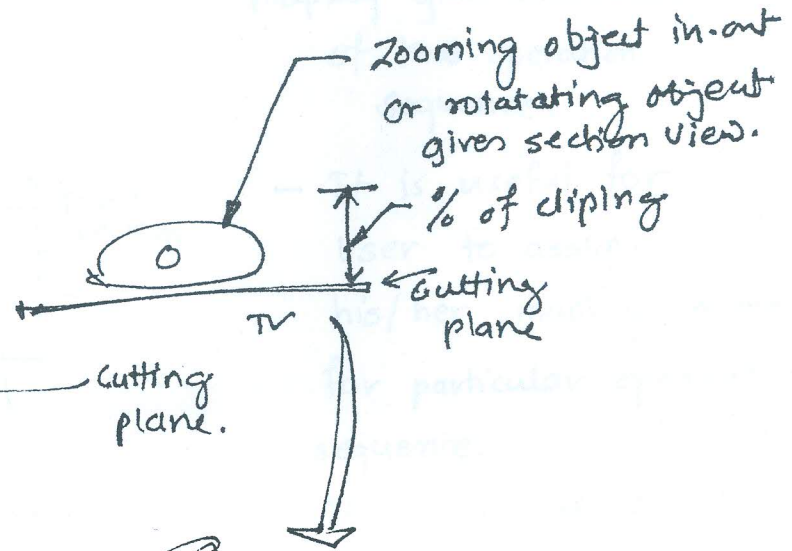 Zooming object in-out
or rotatating object
gives section view.
% of cliping
Cutting
plane
TV
Cutting
plane.